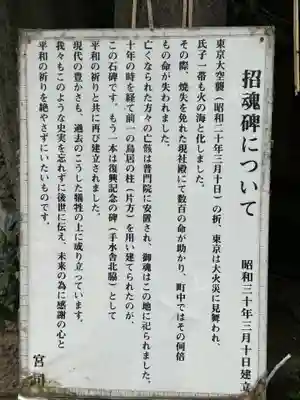 招魂碑について
昭和三十年三月十日建立
東京大空襲（昭和二十年三月十日）の折、東京は大火災に見舞われ、
氏子一帯も火の海と化しました。
その際、焼失を免れた現社殿にて数百の命が助かり、町中ではその何倍
もの命が失われました。
亡くなられた方々の亡骸は普門院に安置され、御魂はこの地に祀られました。
十年の時を経て前一の鳥居の柱（片方）を用い建てられたのが、
この石碑です。もう一本は復興記念の碑（手水舎北脇）として
平和の祈りと共に再び建立されました。
現代の豊かさも、過去のこうした犠牲の上に成り立っています。
我々もこのような史実を忘れずに後世に伝え、未来の為に感謝の心と
平和の祈りを絶やさずにいたいものです。
宮司